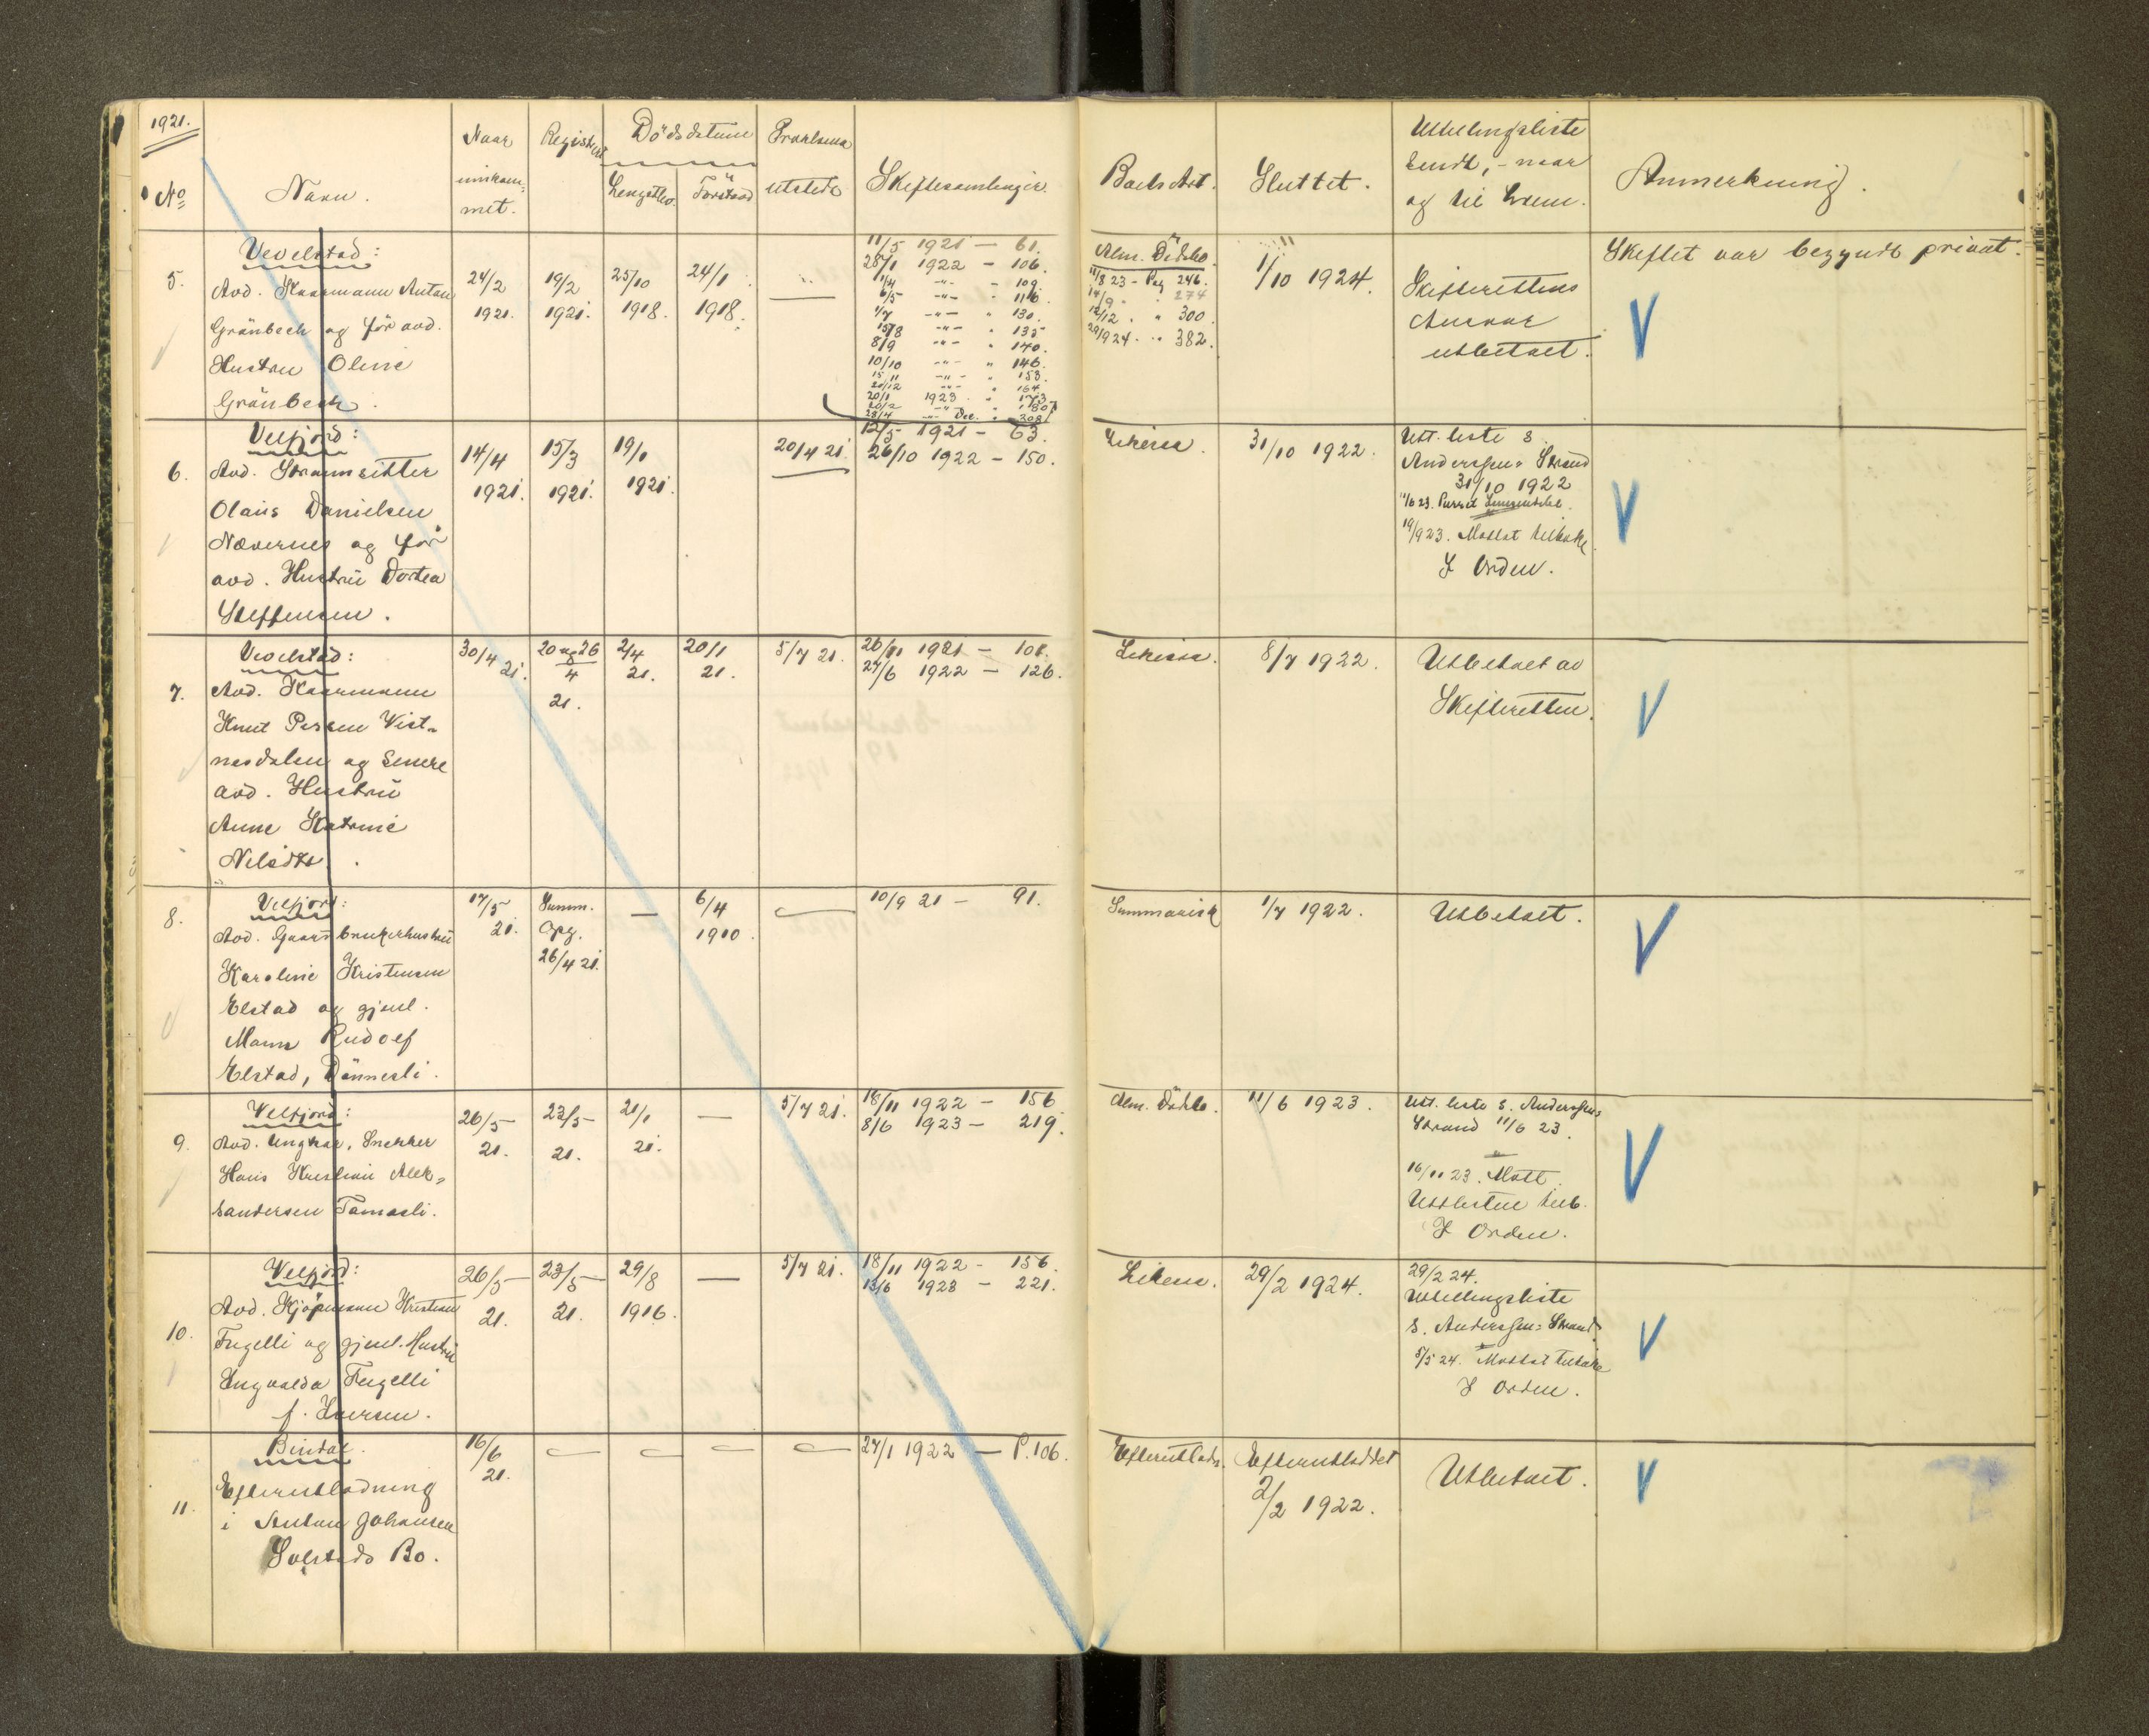 1921.
No
Navn.
Naar
innkom-
met.
Registrert
Dödsdatum
Lengstlev.
Förstavd
Proklama
utstedt
Skiftesamlinger.
Boets Art.
Sluttet.
Utdelingsliste
sendt, - naar
og til hvem.
Anmerkning.
5.
Vevelstad:
Avd. Kaarmann Anton
Grönbech og för avd.
Hustru Oline
Grönbech.
24/2
1921.
19/2
1921.
25/10
1918.
24/1
1918.
11/5 1921 - 61.
28/1 1922 - 106.
11/4 -"- - 109.
6/5 -"- - 116.
1/7 -"- " 130.
15/8 -"- " 135
8/9 -"- " 140.
10/10 -"- " 146.
15/11 -"- " 153.
20/12 -"- " 164
20/1 1923 " 173
20/2 -"- " 180
28/4 -"- Dec. " 208
Alm. Dödsbo.
11/8 23 - Pag 246.
14/9 " " 274
12/12 " " 300.
29/1 924 " 382.
1/10 1924.
Skifterettens
Ansvar
utbetalt.
Skiftet var begyndt privat.
6.
Velfjord:
Avd. Strannsitter
Olaus Danielsen
Nævernes og för
avd. Hustru Dortea
Steffensen.
14/4
1921.
15/3
1921.
19/1
1921.
20/4 21.
12/5 1921 - 63.
26/10 1922 - 150.
31/10 1922.
Utd. liste s.
Anderssen, Strand
31/10 1922
11/6 23. Purret Lensmannen.
19/9 23. Mottat tilbake
I Orden.
7.
Vevelstad:
Avd. Kaarmann
Knut Persen Vist-
nesdalen og senere
avd. Hustru
Anne Katrine
Nilsdtr.
30/4 21.
20 og 26
4
21.
2/4
21.
20/1
21.
5/7 21.
26/11 1921 - 101.
27/6 1922 - 126.
8/7 1922.
Utbetalt av
Skifteretten.
8.
Velfjord:
Avd. Gaardbrukerhustru
Karoline Kristensen
Elstad og gjenl.
Mann Rudolf
Elstad, Dönnesli.
17/5
21.
Summ.
Opg.
26/4 21.
—
6/4
1910.
10/9 21 - 91.
Summarisk
1/7 1922.
Utbetalt.
9.
Velfjord:
Avd. Ungkar, Snekker
Hans Kristian Alek-
sandersen Tomasli.
26/5
21.
23/5
21.
21/1
21.
—
5/7 21.
18/11 1922 - 156
8/6 1923 - 219.
Alm. Dödsbo.
11/6 1923.
Utd. liste s. Anderssen,
Strand 11/6 23.
16/11 23. Mott.
Utdlisten tilb.
I Orden.
10.
Velfjord:
Avd. Kjöpmann Kristian
Fugelli og gjenl. Hustru
Ingvalda Fugelli
f. Iversen.
26/5
21.
23/5
21.
29/8
1916.
—
5/7 21.
18/11 1922 - 156.
13/6 1923 - 221.
29/2 1924.
29/2 24.
Utdelingsliste
s. Anderssen, Strand.
5/5 24. Mottat tilbake
I Orden.
11.
Bindal.
Efterutlodning
i Anton Johansen
Solstads Bo.
16/6
21.
27/1 1922 — P. 106.
Efterutlodn.
Efterutloddet
2/2 1922.
Utbetalt.